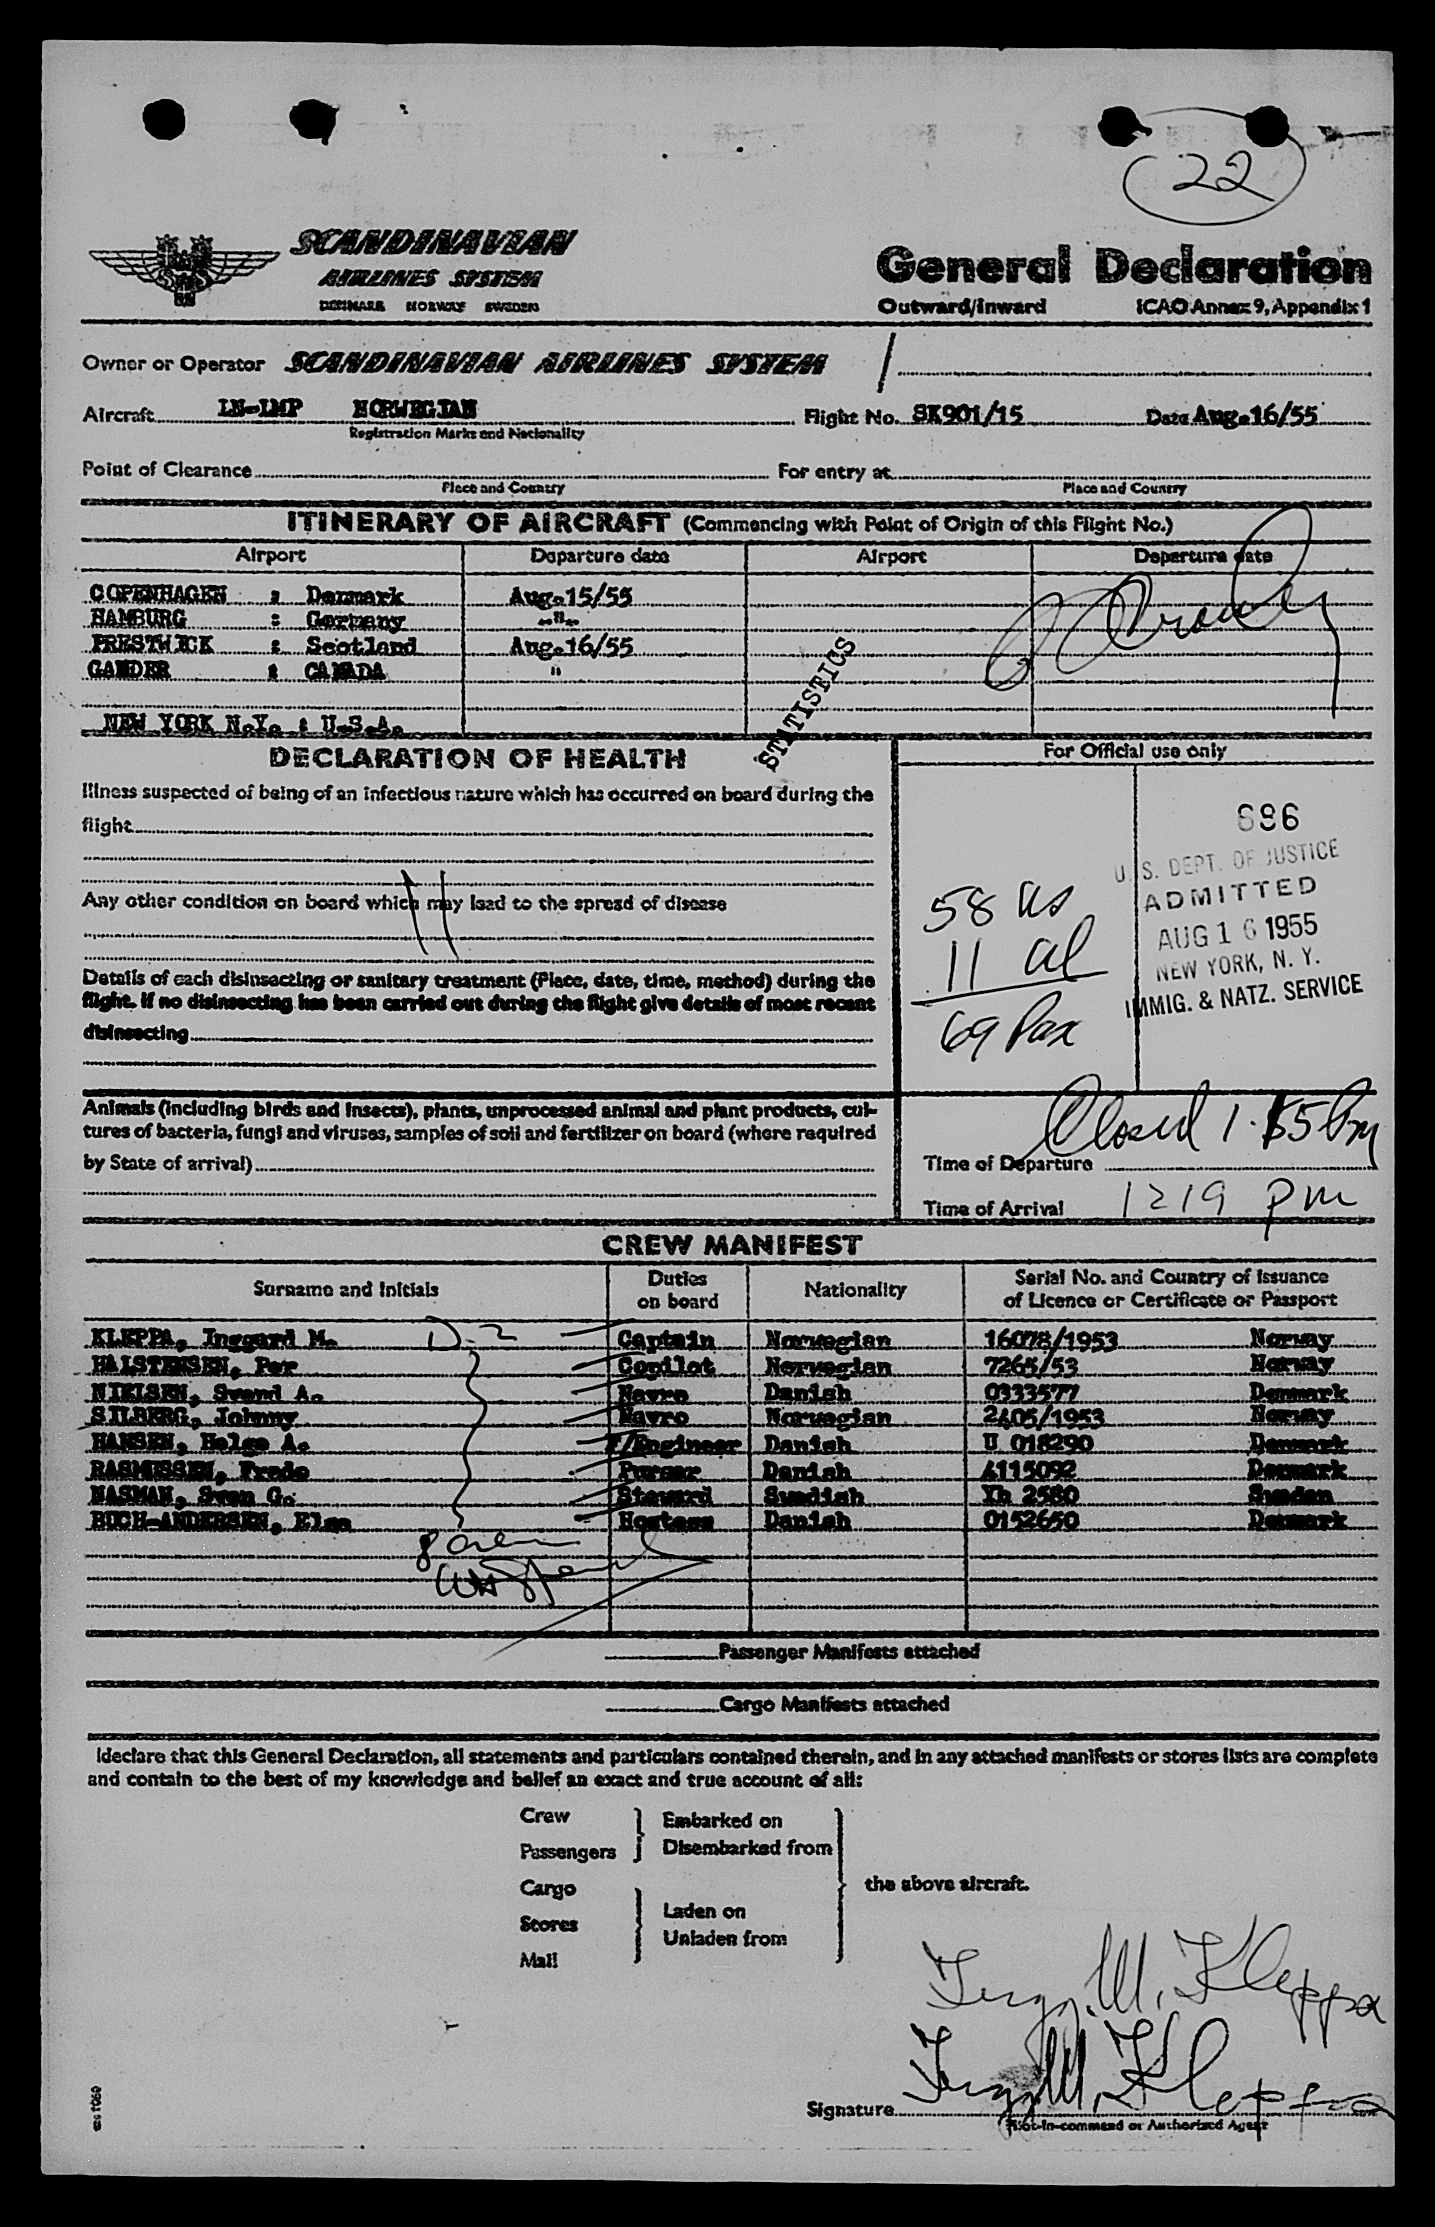 22
SCANDINAVIAN
AIRLINES SYSTEM
DENMARK NORWAY SWEDEN
SAS
General Declaration
Outward/Inward ICAO Annex 9, Appendix 1
Owner or Operator SCANDINAVIAN AIRLINES SYSTEM /
Aircraft LN-LMP NORWEGIAN Flight No. SK901/15 Date Aug.16/55
Registration Marks and Nationality
Point of Clearance For entry at
Place and Country Place and Country
ITINERARY OF AIRCRAFT (Commencing with Point of Origin of this Flight No.)
Airport Departure date Airport Departure date
COPENHAGEN : Denmark Aug.15/55
HAMBURG : Germany -"-
PRESTWICK : Scotland Aug.16/55
GANDER : CANADA "
NEW YORK N.Y. : U.S.A.
STATISTICS
DECLARATION OF HEALTH
For Official use only
Illness suspected of being of an infectious nature which has occurred on board during the
flight
Any other condition on board which may lead to the spread of disease
Details of each disinsecting or sanitary treatment (Place, date, time, method) during the
flight. If no disinsecting has been carried out during the flight give details of most recent
disinsecting
58 us
11 al
69 Pax
696
U.S. DEPT. OF JUSTICE
ADMITTED
AUG 16 1955
NEW YORK, N. Y.
IMMIG. & NATZ. SERVICE
Animals (including birds and insects), plants, unprocessed animal and plant products, cul-
tures of bacteria, fungi and viruses, samples of soil and fertilizer on board (where required
by State of arrival)
Closed 1.55 Pm
Time of Departure
Time of Arrival 1219 pm
CREW MANIFEST
Surname and Initials Duties on board Nationality Serial No. and Country of Issuance of Licence or Certificate or Passport
KLEPPA, Inggard M. D-2 Captain Norwegian 16078/1953 Norway
HALSTENSEN, Per Copilot Norwegian 7265/53 Norway
NIELSEN, Svend A. Navro Danish 0333577 Denmark
SILBERG, Johnny Navro Norwegian 2405/1953 Norway
HANSEN, Helge A. F/Engineer Danish U 018290 Denmark
RASMUSSEN, Frede Purser Danish 4115092 Denmark
NASMAN, Sven G. Steward Swedish Yh 2580 Sweden
BUCH-ANDERSEN, Else Hostess Danish 0152650 Denmark
Passenger Manifests attached
Cargo Manifests attached
I declare that this General Declaration, all statements and particulars contained therein, and in any attached manifests or stores lists are complete
and contain to the best of my knowledge and belief an exact and true account of all:
Crew
Passengers
Embarked on
Disembarked from
Cargo
Stores
Mail
Laden on
Unladen from
the above aircraft.
Ingg. M. Kleppa
Ingg. M. Kleppa
Signature
Pilot-in-command or Authorized Agent